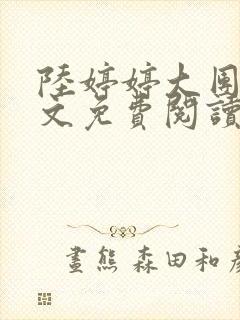 陸婷婷大圉
文免費閱讀
畫熊 森田和彥